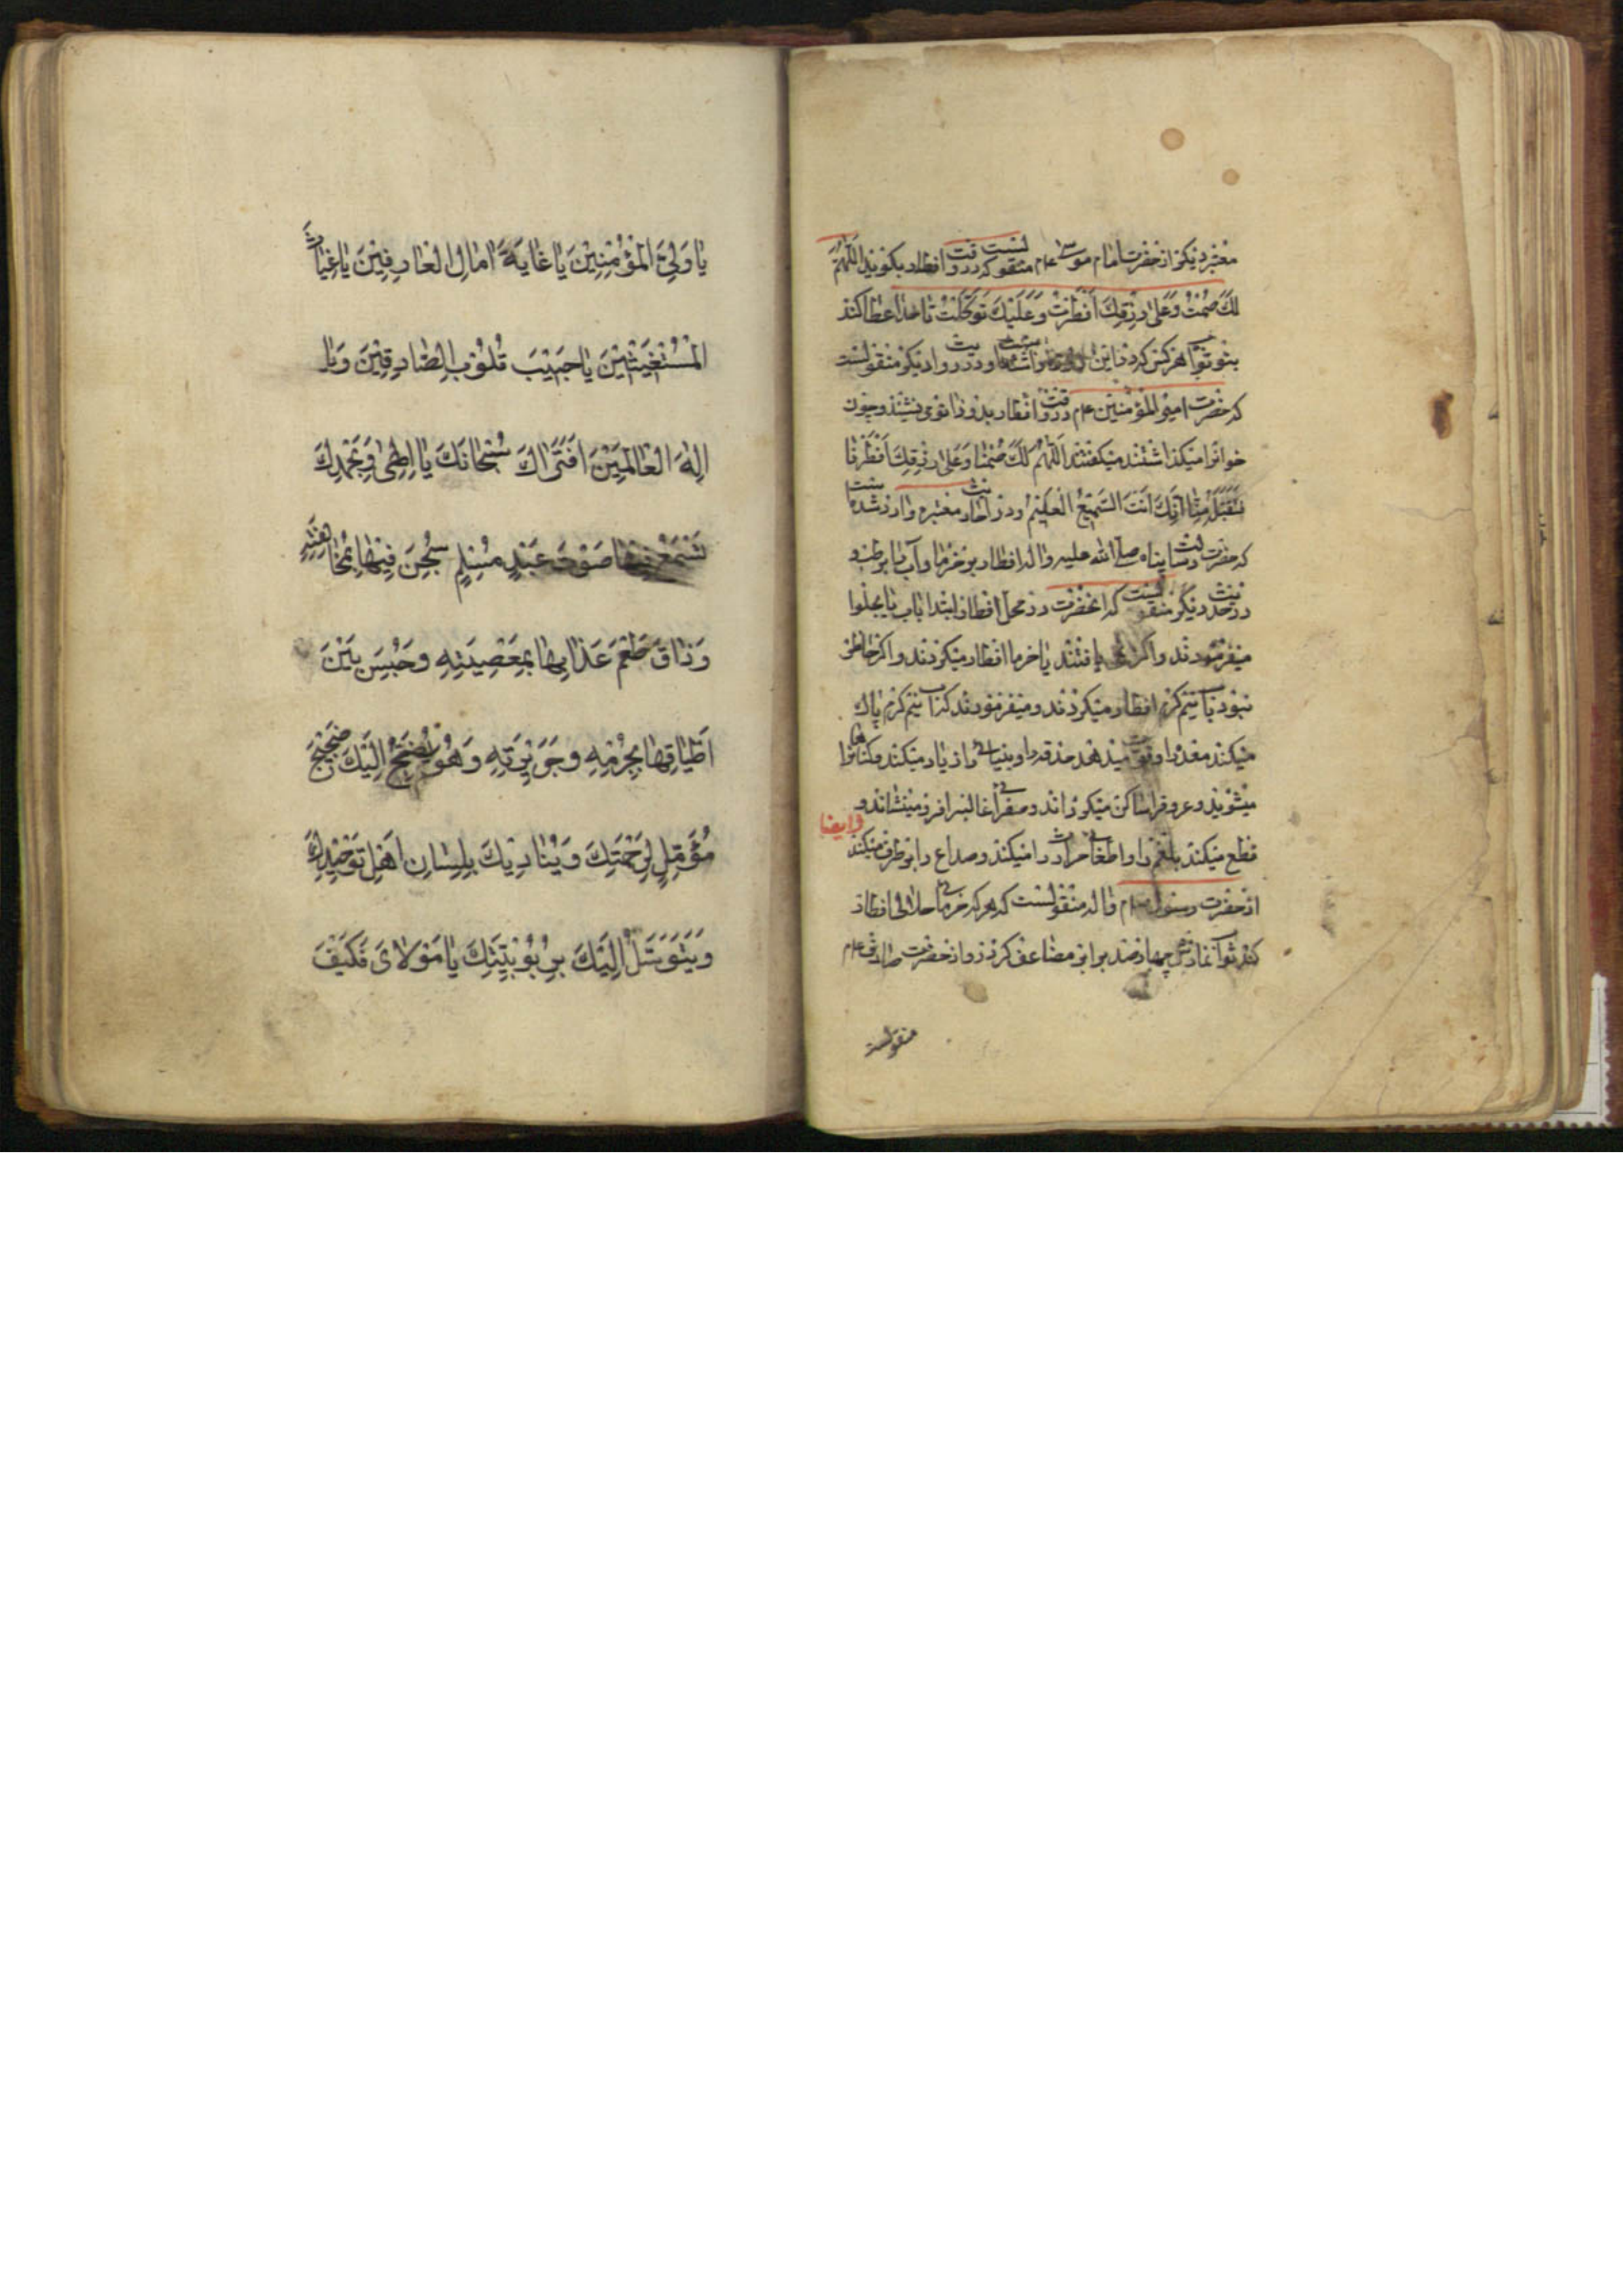 معتبر دیگر از حضرت امام موسی ع‌م منقولست که در وقت افطار بگویند اَللّهُمَّ
لَكَ صُمْتُ وَعَلىٰ رِزْقِكَ اَفْطَرْتُ وَعَلَيْكَ تَوَكَّلْتُ تا خدا عطا کند
بتو ثواب هر کس که در این روز روزه داشته است و در روایت دیگر منقولست
که حضرت امیر المؤمنین ع‌م در وقت افطار بدو زانو می نشستند و چون
خوانرا میگذاشتند میگفتند اَللّهُمَّ لَكَ صُمْنٰا وَعَلىٰ رِزْقِكَ اَفْطَرْنٰا
فَتَقَبَّلْ مِنّٰا اِنَّكَ اَنْتَ السَّمِيعُ الْعَلِيمُ و در احادیث معتبره وارد شده است
که حضرت رسالت پناه صلی الله علیه و اله افطار بر خرما و آب یا بر رطب و
در حدیث دیگر منقولست که انحضرت در محل افطار ابتدا باب یا بحلوا
میفرمودند و اگر نمی یافتند یا خرما افطار میکردند و اگر حاضر
نبود باب نیم گرم افطار میکردند و میفرمودند که اب نیم گرم پاك
میکند معده را و قوت میدهد حدقه را و بینائی را زیاد میکند و گناهانرا
میشوید و عروقرا ساکن میگرداند و صفرای غالبرا فرو مینشاند و
قطع میکند بلغم را و اطفای حرارت را میکند و صداع را بر طرف میکند وایضا
از حضرت رسول ع‌م و اله منقولست که هر که خرمای حلالی افطار
کند ثواب نمازش چهارصد برابر مضاعف کردد و از حضرت صادق ع‌م
منقولست
يٰا وَلِيَّ الْمُؤْمِنِيْنَ يٰا غٰايَةَ اٰمٰالِ الْعٰارِفِيْنَ يٰا غِيٰاثَ
الْمُسْتَغِيْثِيْنَ يٰا حَبِيْبَ قُلُوْبِ الصّٰادِقِيْنَ وَيٰا
اِلٰهَ الْعٰالَمِيْنَ اَفَتَرٰاكَ سُبْحٰانَكَ يٰا اِلٰهِى وَبِحَمْدِكَ
تَسْمَعُ فِيْهٰا صَوْتَ عَبْدٍ مُسْلِمٍ سُجِنَ فِيْهٰا بِمُخٰالَفَتِهِ
وَذٰاقَ طَعْمَ عَذٰابِهٰا بِمَعْصِيَتِهِ وَحُبِسَ بَيْنَ
اَطْبٰاقِهٰا بِجُرْمِهِ وَجَرِيْرَتِهِ وَهُوَ يَضِجُّ اِلَيْكَ ضَجِيْجَ
مُؤَمِّلٍ لِرَحْمَتِكَ وَيُنٰادِيْكَ بِلِسٰانِ اَهْلِ تَوْحِيْدِكَ
وَيَتَوَسَّلُ اِلَيْكَ بِرُبُوْبِيَّتِكَ يٰا مَوْلاٰىَ فَكَيْفَ